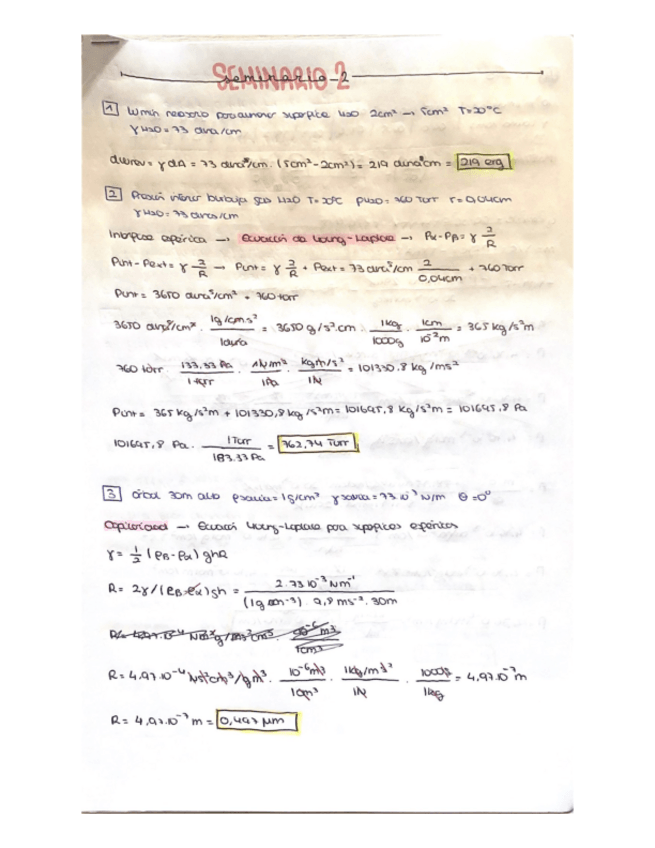 SEMINARIO 2
seminario-2
1 Wmín necesario para aumentar superficie H2O 2cm² → 5cm² T=20°C
γ H2O = 73 dina/cm
dWrev = γ dA = 73 dina/cm · (5cm² - 2cm²) = 219 dina cm = 219 erg
2 Presión interior burbuja gas H2O T=20°C PH2O = 760 Torr r = 0,04cm
γ H2O = 73 dinas/cm
Interfase esférica → Ecuación de Young-Laplace → Pα - Pβ = γ 2/R
Pint - Pext = γ 2/R → Pint = γ 2/R + Pext = 73 dina/cm 2/0,04cm + 760 Torr
Pint = 3650 dina/cm² + 760 torr
3650 dina/cm² · 1g/cm·s²/1dina = 3650 g/s²·cm · 1kg/1000g · 1cm/10⁻²m = 365 kg/s²m
760 torr · 133.33 Pa/1 torr · 1N/m²/1Pa · kg m/s²/1N = 101330.8 kg/ms²
Pint = 365 kg/s²m + 101330,8 kg/s²m = 101695,8 kg/s²m = 101695,8 Pa
101695,8 Pa · 1 Torr/133.33 Pa = 762,74 Torr
3 árbol 30m alto ρsavia = 1g/cm³ γsavia = 73·10⁻³ N/m θ = 0°
Capilaridad → Ecuación Young-Laplace para superficies esféricas
γ = 1/2 (ρβ - ρα) ghR
R = 2γ/(ρβ-ρα)gh = 2·73·10⁻³ Nm⁻¹/(1g cm⁻³) · 9,8 ms⁻² · 30m
R = 4,97·10⁻⁴ Ns²cm³/gm³ · 10⁻⁶m³/1cm³ · 1kg/m s²/1N · 1000g/1kg = 4,97·10⁻⁷ m
R = 4,97·10⁻⁷ m = 0,497 μm